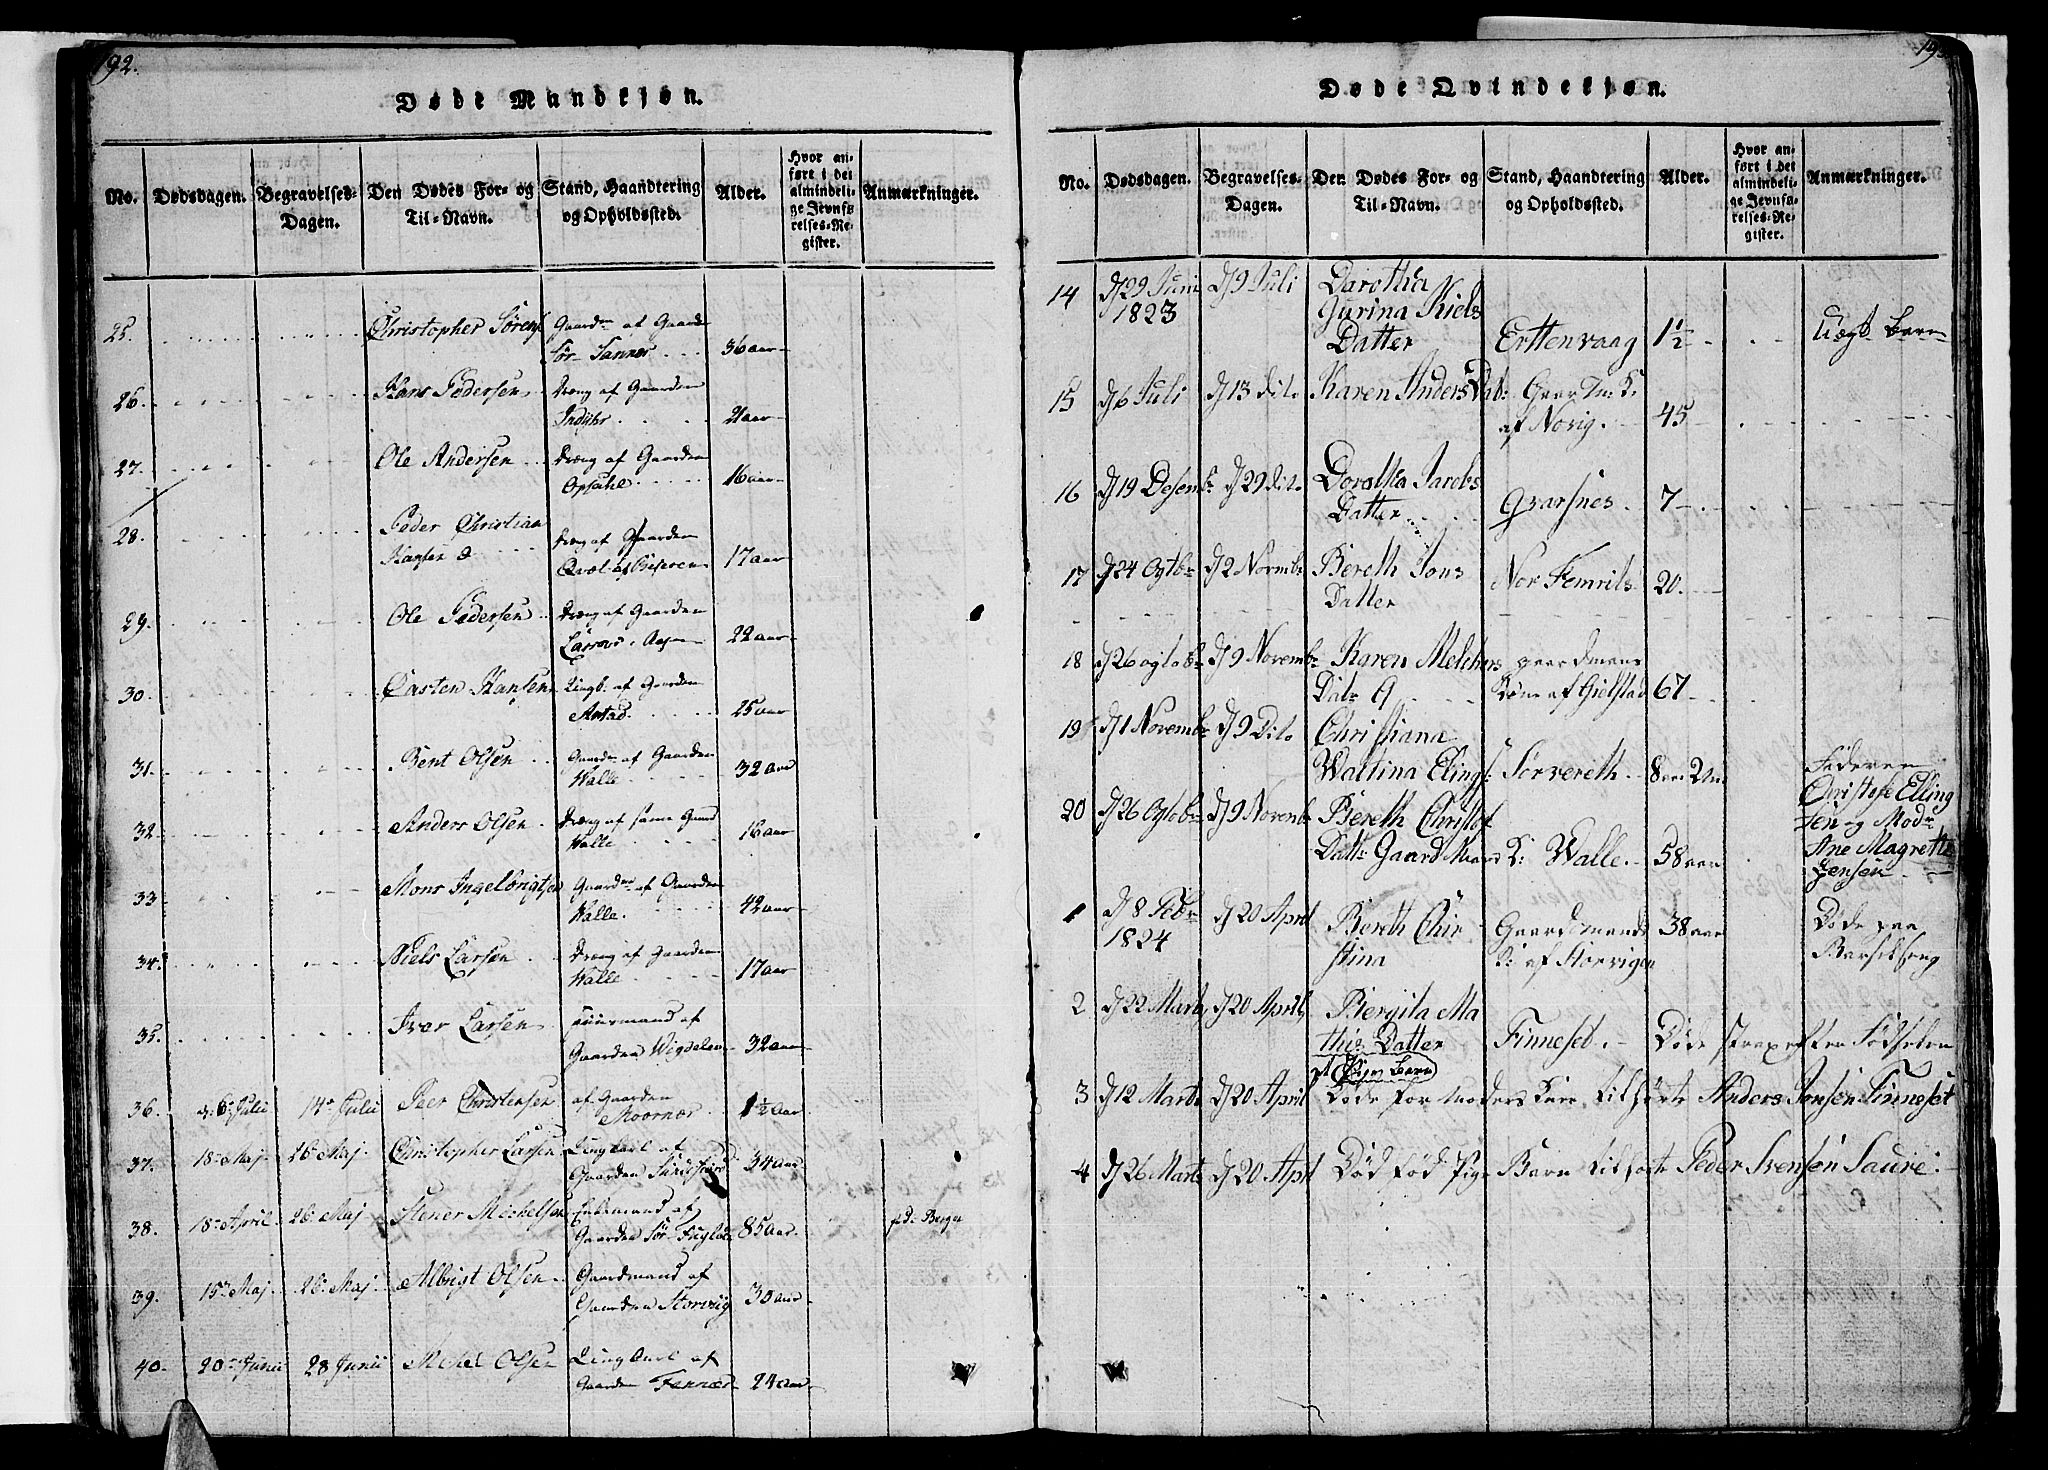 192.
Døde Mandkjøn.
No.
Dødsdagen.
Begravelses-
Dagen.
Den Dødes For- og
Til-Navn.
Stand, Haandtering
og Opholdssted.
Alder.
Hvor an-
ført i det
almindeli-
ge Jevnfø-
relses-Re-
gister.
Anmærkninger.
25.
Christopher Sørens
Gaardm af Gaarden
Sør Sannes
36 aar
26.
Hans Pedersen
Dreng af Gaarden
Indyhr
21 aar
27.
Ole Andersen
Dreng af Gaarden
Opsahl
16 aar
28.
Peder Christian
Hansen
Dreng af Gaarden
17 aar
29.
Ole Pedersen
Dreng af Gaarden
22 aar
30.
Carsten Hansen
Lingk: af Gaarden
25 aar
31.
Bent Olsen
Gaardm af Gaarden
Walle
32 aar
32.
Anders Olsen
Dreng af samme Gaard
Walle
16 aar
33
Mons Ingelbrigtsen
Gaardm af Gaarden
Walle.
42 aar
34.
Niels Larsen
Dreng af Gaarden
Walle
17 aar
35.
Ivar Larsen
Huusmand af
Gaarden Wigdelen
32 aar
36.
d. 6 Julii
14 Julii
Peer Christensen
af Gaarden
Moornes
1½ Aar
37.
18 Maj
26 Maj
Christopher Larsen
Lingkarl af
Gaarden
34 aar
38.
18 April
26 Maj
Stener Michelsen
Enkemand af
Gaarden Sør
85 aar
39.
15 Maj
26 Maj
Albrigt Olsen
Gaardmand af
Gaarden Storvig
30 aar
40.
20 Junii
28 Junii
Michel Olsen
Lingkarl af
Gaarden
24 aar
Døde Qvindekjøn.
No.
Dødsdagen.
Begravelses-
Dagen.
Den Dødes For- og
Til-Navn.
Stand, Haandtering
og Opholdssted.
Alder.
Hvor an-
ført i det
almindeli-
ge Jevnfø-
relses-Re-
gister.
Anmærkninger.
14
d 29 Juni
1823
d 9 Juli
Darothia
Gurina Niels
Datter
Erttenvaag
1½
Uægt Barn
15
d 6 Juli
d 13 Dito
Karen Anders Dat:
af Norig
45
16
d 19 Desemb
d 29 Dito
Dorothea Jacobs
Datter
Qvarsnes
7
17
d 24 Ogtbr
d 2 Novembr
Bereth Jons
Datter
Nor Femriis
20.
18
d 26 ogtobr
d 9 Novembr
Karen Melchers
Datr
gaardmans
Kone af Gielstad
67
19
d 1 Novembr
d 9 Dito
Christiana
Martina Elings
Sørvereth
8 aar 2 m
Federen
Christofe Elling
sen og Modr
Ane Magrethe
Jensen
20
d 26 Ogtobr
d 9 Novembr
Bereth Christof
Datr Gaard Mand
K: Walle
58 aar
1
d 8 Febr
1824
d 20 April
Bereth Chir
stina
Gaardmands
K: af Storvigen
38 aar
Døde paa
Barselseng
2
d 22 Marts
d 20 April
Bergita Ma
this Datter
et Pige Barn
Finneset
Døde strax efter Fødselen
3
d 12 Marts
d 20 April
Døde for moders Liv tilhørte Anders Jensen Finneset
4
d 26 Marts
d 20 April
Død fød Pige Barn tilhørte Peder Svensøn Saure